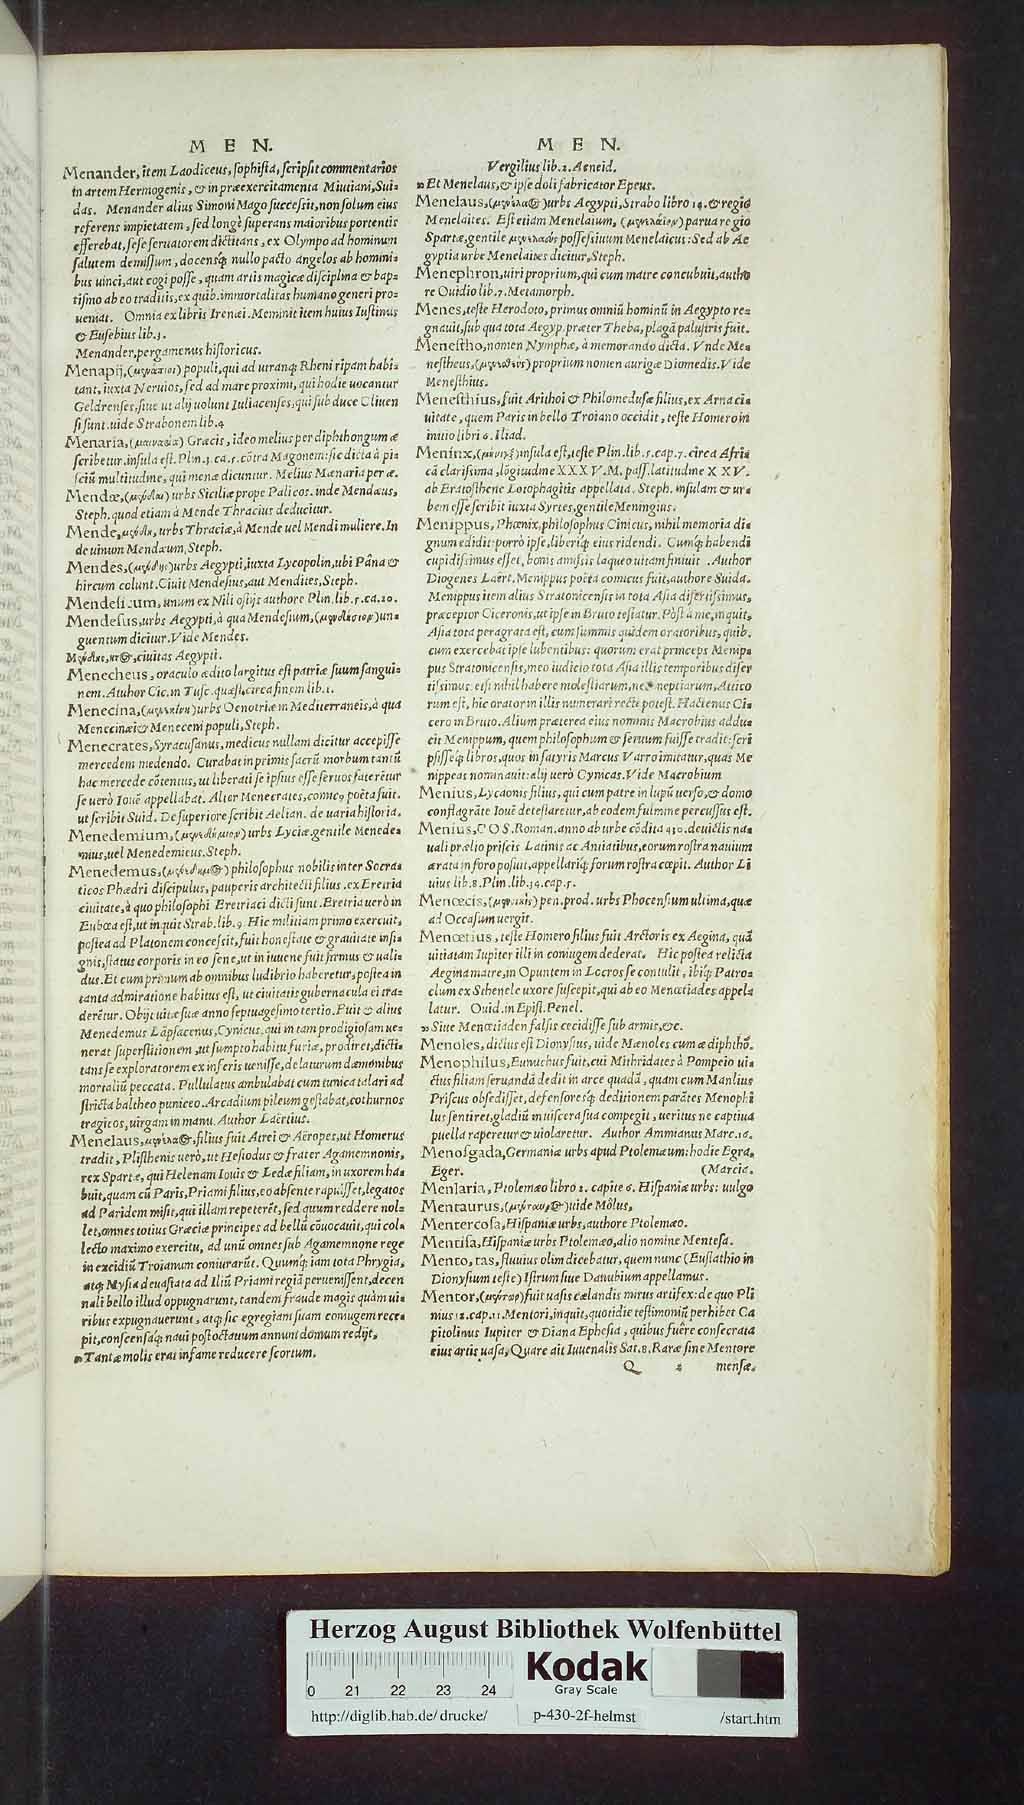 M E N.
Menander, item Laodiceus, ſophiſta, ſcripſit commentarios
in artem Hermogenis, & in præexercitamenta Miutiani, Sui-
das. Menander alius Simoni Mago ſucceſsit, non ſolum eius
referens impietatem, ſed longè ſuperans maioribus portentis
efferebat, ſeſe ſeruatorem dictitans, ex Olympo ad hominum
ſalutem demiſſum, docensq́; nullo pacto angelos ab homini-
bus uinci, aut cogi poſſe, quam artis magicæ diſciplina & bap-
tiſmo ab eo traditis, ex quib. immortalitas humano generi pro-
ueniat. Omnia ex libris Irenæi. Meminit item huius Iuſtinus
& Euſebius lib.3.
Menander, pergamenus hiſtoricus.
Menapij, (μενάπιοι) populi, qui ad utranq; Rheni ripam habi-
tant, iuxta Neruios, ſed ad mare proximi, qui hodie uocantur
Geldrenſes, ſiue ut alij uolunt Iuliacenſes, qui ſub duce Cliuen
ſi ſunt. uide Strabonem lib.4
Menaria, Græcis, ideo melius per diphthongum æ
ſcribetur. inſula eſt. Plin.3.ca.5. cõtra Magonem: ſic dicta à pi-
ſciũ multitudine, qui menæ dicuntur. Melius Mænaria per æ.
Mendœ, urbs Siciliæ prope Palicos. inde Mendæus,
Steph. quod etiam à Mende Thracius deducitur.
Mende, μένδη, urbs Thraciæ, à Mende uel Mendi muliere. In
de uinum Mendæum, Steph.
Mendes, (μένδης) urbs Aegypti, iuxta Lycopolin, ubi Pâna &
hircum colunt. Ciuit Mendeſius, aut Mendites, Steph.
Mendeſicum, unum ex Nili oſtijs authore Plin. lib.5.ca.10.
Mendeſus, urbs Aegypti, à qua Mendeſium, (μενδήσιον) un-
guentum dicitur. Vide Mendes.
ciuitas Aegypti.
Menecheus, oraculo ædito largitus eſt patriæ ſuum ſangui-
nem. Atuhor Cic. in Tuſc. quæſt. circa finem lib.1.
Menecina, (μενεκίνη) urbs Oenotriæ in Mediterraneis, à qua
Menecinæi & Meneceni populi, Steph.
Menecrates, Syracuſanus, medicus nullam dicitur accepiſſe
mercedem medendo. Curabat in primis ſacrũ morbum tantũ
hac mercede cõtentus, ut liberati ſe ipſius eſſe ſeruos faterētur
ſe uerò Iouē appellabat. Alter Menecrates, comicꝰ poëta fuit.
ut ſcribit Suid. De ſuperiore ſcribit Aelian. de uaria hiſtoria.
Menedemium, (μενεδήμιον) urbs Lyciæ. gentile Menede-
mius, uel Menedemieus. Steph.
Menedemus, (μενέδημος) philoſophus nobilis inter Socra-
ticos Phædri diſcipulus, pauperis architecti filius. ex Eretria
ciuitate, à quo philoſophi Eretriaci dicti ſunt. Eretria uerò in
Eubœa eſt, ut inquit Strab. lib.9. Hic militiam primo exercuit,
poſtea ad Platonem conceſsit, fuit honeſtate & grauitate inſi-
gnis, ſtatus corporis in eo ſene, ut in iuuene fuit firmus & uali-
dus. Et cum primum ab omnibus ludibrio haberetur, poſtea in
tanta admiratione habitus eſt, ut ciuitatis gubernacula ei tra-
derētur. Obijt uitæ ſuæ anno ſeptuageſimo tertio. Fuit & alius
Menedemus Lãpſacenus, Cynicus, qui in tam prodigioſam ue-
nerat ſuperſtitionem, ut ſumpto habitu furiæ, prodiret, dicti-
tans ſe exploratorem ex inferis ueniſſe, delaturum dæmonibus
mortaliũ peccata. Pullulatus ambulabat cum tunica talari ad
ſtricta baltheo puniceo. Arcadium pileum geſtabat, cothurnos
tragicos, uirgam in manu. Author Laërtius.
Menelaus, μενέλαος, filius fuit Atrei & Aëropes, ut Homerus
tradit, Pliſthenis uerò, ut Heſiodus & frater Agamemnonis,
rex Spartæ, qui Helenam Iouis & Ledæ filiam, in uxorem ha-
buit, quam cũ Paris, Priami filius, eo abſente rapuiſſet, legatos
ad Paridem miſit, qui illam repeterēt, ſed quum reddere nol-
let, omnes totius Græciæ principes ad bellũ cõuocauit, qui col-
lecto maximo exercitu, ad unũ omnes ſub Agamemnone rege
in excidiũ Troianum coniurarūt. Quumq́; iam tota Phrygia,
atq; Myſia deuaſtata ad Iliũ Priami regiã perueniſſent, decen
nali bello illud oppugnarunt, tandem fraude magis quàm ui-
ribus expugnauerunt, atq; ſic egregiam ſuam coniugem rece-
pit, conſcenſaq́; naui poſt octauum annum domum redijt,
„Tantæ molis erat infame reducere ſcortum.
M E N.
Vergilius lib.2. Aeneid.
„Et Menelaus, & ipſe doli fabricator Epeus.
Menelaus, (μενέλαος) urbs Aegypti, Strabo libro 14. & regio
Menelaites. Eſt etiam Menelaium, (μενελάϊον) parua regio
Spartæ, gentile poſſeſsiuum Menelaicus: Sed ab Ae
gyptia urbe Menelaites dicitur, Steph.
Menephron, uiri proprium, qui cum matre concubuit, autho
re Ouidio lib.7. Metamorph.
Menes, teſte Herodoto, primus omniũ hominũ in Aegypto re-
gnauit, ſub qua tota Aegyp. præter Theba, plagã paluſtris fuit.
Meneſtho, nomen Nymphæ, à memorando dicta. Vnde Me-
neſtheus, (μενεσθεύς) proprium nomen aurigæ Diomedis. Vide
Meneſthius.
Meneſthius, fuit Arithoi & Philomeduſæ filius, ex Arna ci-
uitate, quem Paris in bello Troiano occidit, teſte Homero in
initio libri 6. Iliad.
Meninx, (μῆνιγξ) inſula eſt, teſte Plin. lib.5. cap.7. circa Afri-
cã clariſsima, lõgitudine XXXV. M. paſſ. latitudine XXV.
ab Eratoſthene Lotophagitis appellata. Steph. inſulam & ur-
bem eſſe ſcribit iuxta Syrtes, gentile Meningius.
Menippus, Phœnix, philoſophus Cinicus, nihil memoria di-
gnum edidit: porrò ipſe, liberiq́; eius ridendi. Cumq́; habendi
cupidiſsimus eſſet, bonis amiſsis laqueo uitam finiuit. Author
Diogenes Laërt. Menippus poëta comicus fuit, authore Suida.
Menippus item alius Stratonicenſis in tota Aſia diſertiſsimus,
præceptor Ciceronis, ut ipſe in Bruto teſtatur. Pòſt à me, inquit,
Aſia tota peragrata eſt, cum ſummis quidem oratoribus, quib.
cum exercebat ipſe lubentibus: quorum erat princeps Menip-
pus Stratonicenſis, meo iudicio tota Aſia illis temporibus diſer
tiſsimus: etſi nihil habere moleſtiarum, nec neptiarum, Attico
rum eſt, hic orator in illis numerari rectè poteſt. Hactenus Ci-
cero in Bruto. Alium præterea eius nominis Macrobius addu-
cit Menippum, quem philoſophum & ſeruum fuiſſe tradit: ſcri
pſiſſeq́; libros, quos in ſatyris Marcus Varro imitatur, quas Me
nippeas nominauit: alij uerò Cynicas. Vide Macrobium
Menius, Lycaonis filius, qui cum patre in lupũ uerſo, & domo
conflagrãte Iouē deteſtaretur, ab eodem fulmine percuſſus eſt.
Menius, COS. Roman. anno ab urbe cõdita 410. deuictis na-
uali prælio priſcis Latinis ac Antiatibus, eorum roſtra nauium
ærata in foro poſuit, appellariq́; forum roſtra cœpit. Author Li
uius lib.8. Plin. lib.34. cap.5.
Menœcis, pen. prod. urbs Phocenſium ultima, quæ
ad Occaſum uergit.
Menœtius, teſte Homero filius fuit Arctoris ex Aegina, quã
uitiatam Iupiter illi in coniugem dederat. Hic poſtea relicta
Aegina matre, in Opuntem in Locros ſe contulit, ibiq́; Patro-
clum ex Sthenele uxore ſuſcepit, qui ab eo Menœtiades appel-
latur. Ouid. in Epiſt. Penel.
„Siue Menœtiaden falſis cecidiſſe ſub armis, &c.
Menoles, dictus eſt Dionyſius, uide Mænoles cum æ diphthõ.
Menophilus, Eunuchus fuit, cui Mithridates à Pompeio ui-
ctus filiam ſeruandã dedit in arce quadã, quam cum Manlius
Priſcus obſediſſet, defenſoresq́; deditionem parãtes Menophi
lus ſentiret, gladiũ in uiſcera ſua compegit, ueritus ne captiua
puella raperetur & uiolaretur. Author Ammianus Marc.16.
Menoſgada, Germaniæ urbs apud Ptolemæum: hodie Egra,
Eger. (Marcia.
Menlaria, Ptolemæo libro 2. capite 6. Hiſpaniæ urbs: uulgo
Mentaurus, uide Môlus,
Mentercoſa, Hiſpaniæ urbs, authore Ptolemæo.
Mentiſa, Hiſpaniæ urbs Ptolemæo, alio nomine Menteſa.
Mento, tas, fluuius olim dicebatur, quem nunc (Euſtathio in
Dionyſium teſte) Iſtrum ſiue Danubium appellamus.
Mentor, (μέντωρ) fuit uaſis cælandis mirus artifex: de quo Pli
nius 12. cap.11. Mentori, inquit, quotidie teſtimoniũ perhibet Ca
pitolinus Iupiter & Diana Epheſia, quibus fuêre conſecrata
eius artis uaſa, Quare ait Iuuenalis Sat.8. Raræ ſine Mentore
Q 2 menſæ.
Herzog August Bibliothek Wolfenbüttel
0 21 22 23 24
Kodak
Gray Scale
http://diglib.hab.de/drucke/ p-430-2f-helmst /start.htm